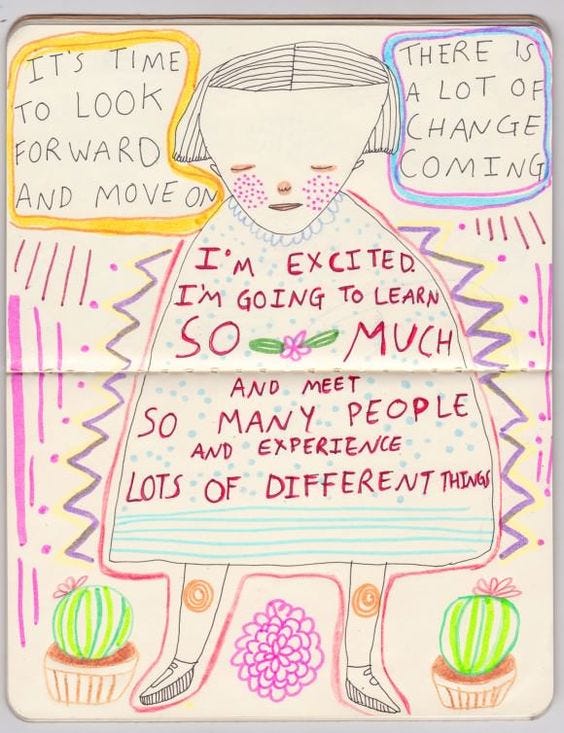 IT'S TIME
TO LOOK
FORWARD
AND MOVE ON
THERE IS
A LOT OF
CHANGE
COMING
I'M EXCITED.
I'M GOING TO LEARN
SO MUCH
AND MEET
SO MANY PEOPLE
AND EXPERIENCE
LOTS OF DIFFERENT THINGS